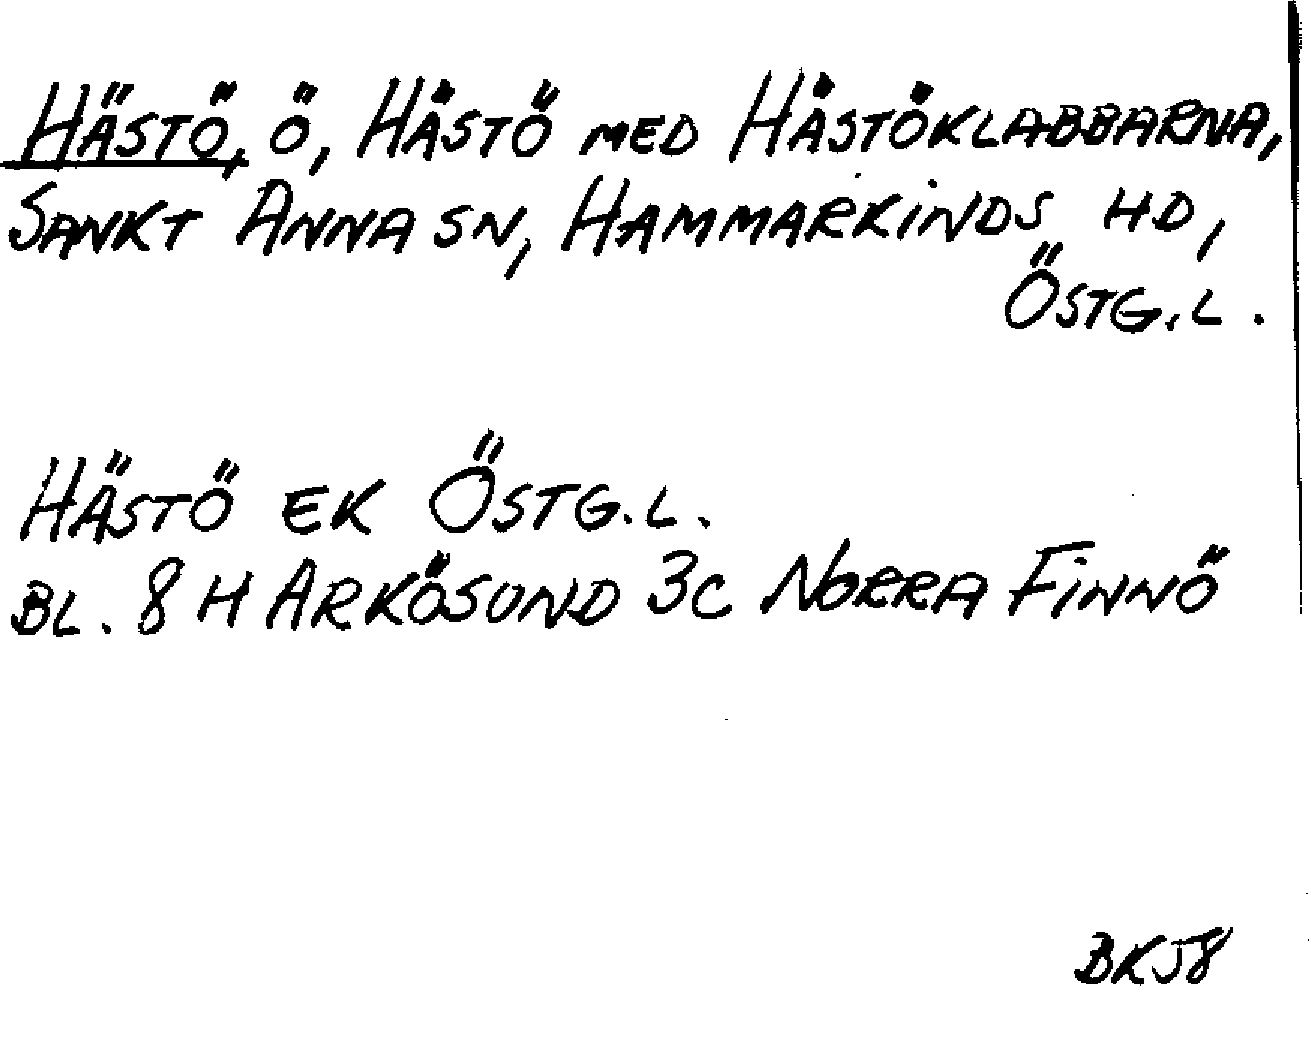 HÄSTÖ, Ö, HÄSTÖ MED HÄSTÖKLABBARNA,
SANKT ANNA SN, HAMMARKINDS HD,
ÖSTG.L.
HÄSTÖ EK ÖSTG.L.
BL. 8 H ARKÖSUND 3C NORRA FINNÖ
BKJ8